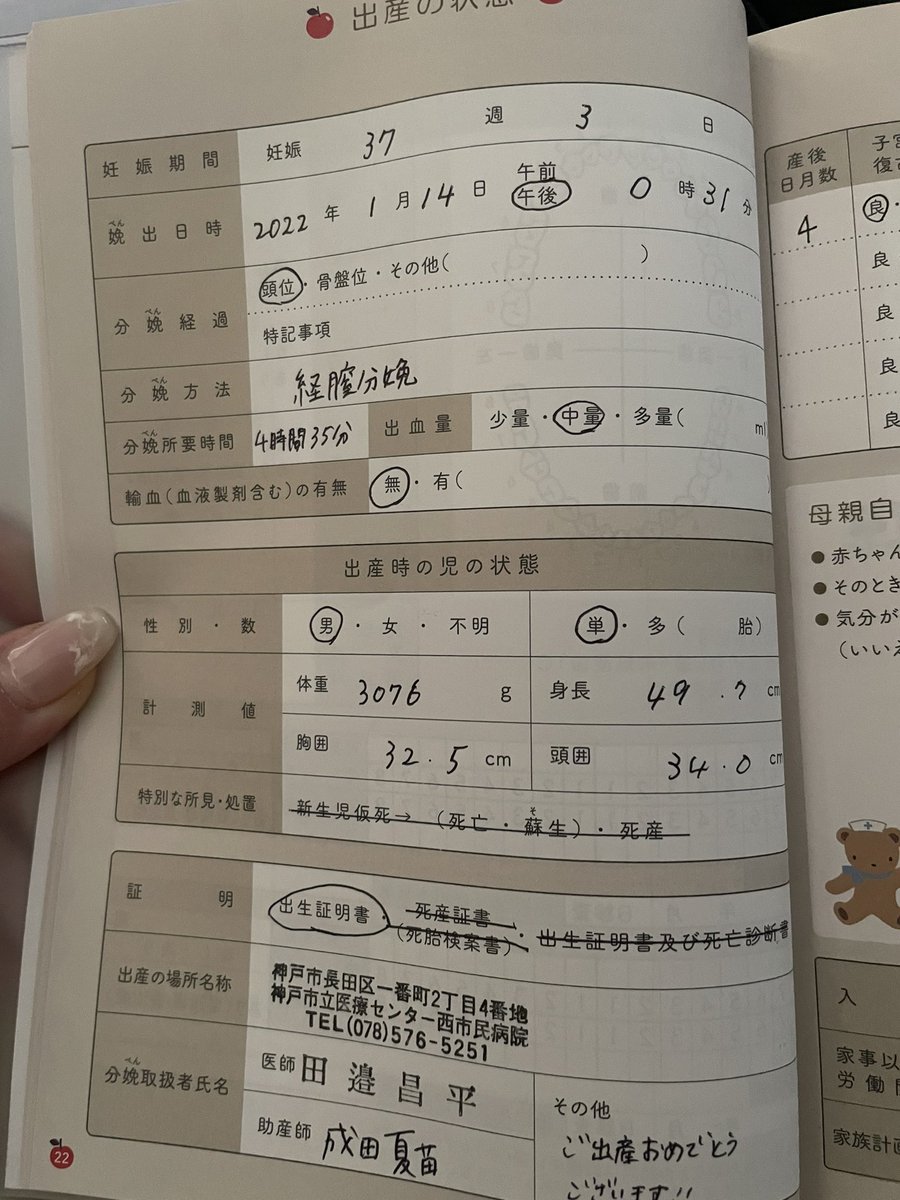 出産の状態
妊娠期間 妊娠 37 週 3 日
娩出日時 2022年 1月14日 午前 午後 0時31分
べん
分娩経過 頭位・骨盤位・その他( )
べん
特記事項
分娩方法 経膣分娩
べん
分娩所要時間 4時間35分 出血量 少量・中量・多量( ml
べん
輸血(血液製剤含む)の有無 無・有(
出産時の児の状態
性別・数 男・女・不明 単・多( 胎)
計測値 体重 3076 g 身長 49.7 cm
胸囲 32.5 cm 頭囲 34.0 cm
特別な所見・処置 新生児仮死→(死亡・蘇生)・死産
そ
証明 出生証明書・死産証書・出生証明書及び死亡診断書
(死胎検案書)
出産の場所名称 神戸市長田区一番町2丁目4番地
神戸市立医療センター西市民病院
TEL(078)576-5251
分娩取扱者氏名 医師 田邉昌平
べん
助産師 成田夏苗
その他
ご出産おめでとう
ございます!!
22
産後
日月数
子宮
復古
4 良・
良
良
良
良
母親自
●赤ちゃん
●そのとき
●気分が
(いいえ
入
家事以
労働
家族計画